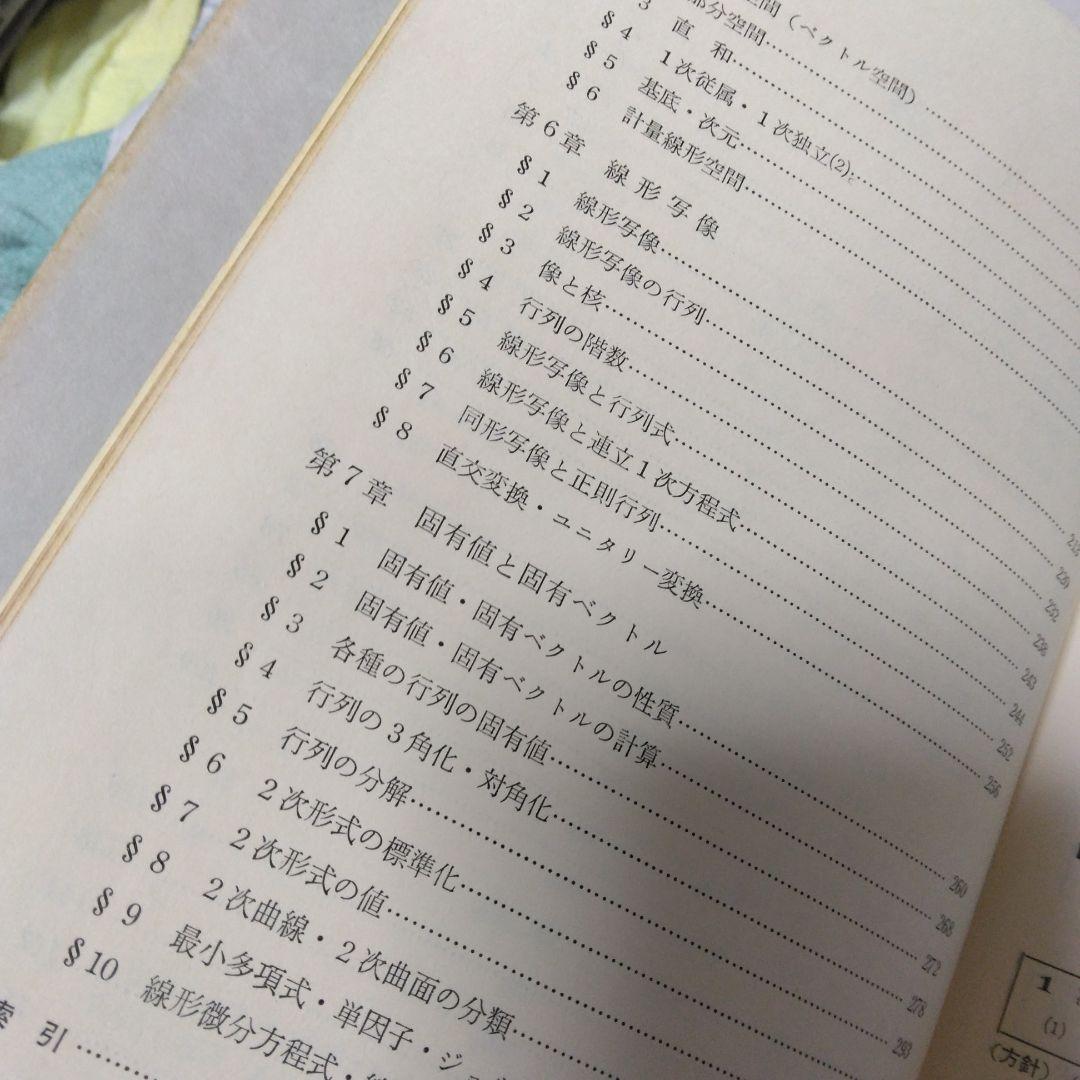 空間（ベクトル空間）……
部分空間……
3 直 和……
§ 4 1次従属・1次独立(2)……
§ 5 基底・次元……
§ 6 計量線形空間……
第6章 線 形 写 像
§ 1 線形写像……
§ 2 線形写像の行列……
§ 3 像と核……232
§ 4 行列の階数……238
§ 5 線形写像と行列式……243
§ 6 線形写像と連立1次方程式……244
§ 7 同形写像と正則行列……252
§ 8 直交変換・ユニタリー変換……256
第7章 固有値と固有ベクトル
§ 1 固有値・固有ベクトルの性質……260
§ 2 固有値・固有ベクトルの計算……268
§ 3 各種の行列の固有値……272
§ 4 行列の3角化・対角化……278
§ 5 行列の分解……293
§ 6 2次形式の標準化……
§ 7 2次形式の値……
§ 8 2次曲線・2次曲面の分類……
§ 9 最小多項式・単因子・ジョ
§10 線形微分方程式・
索 引……
1
(1)
(方針)